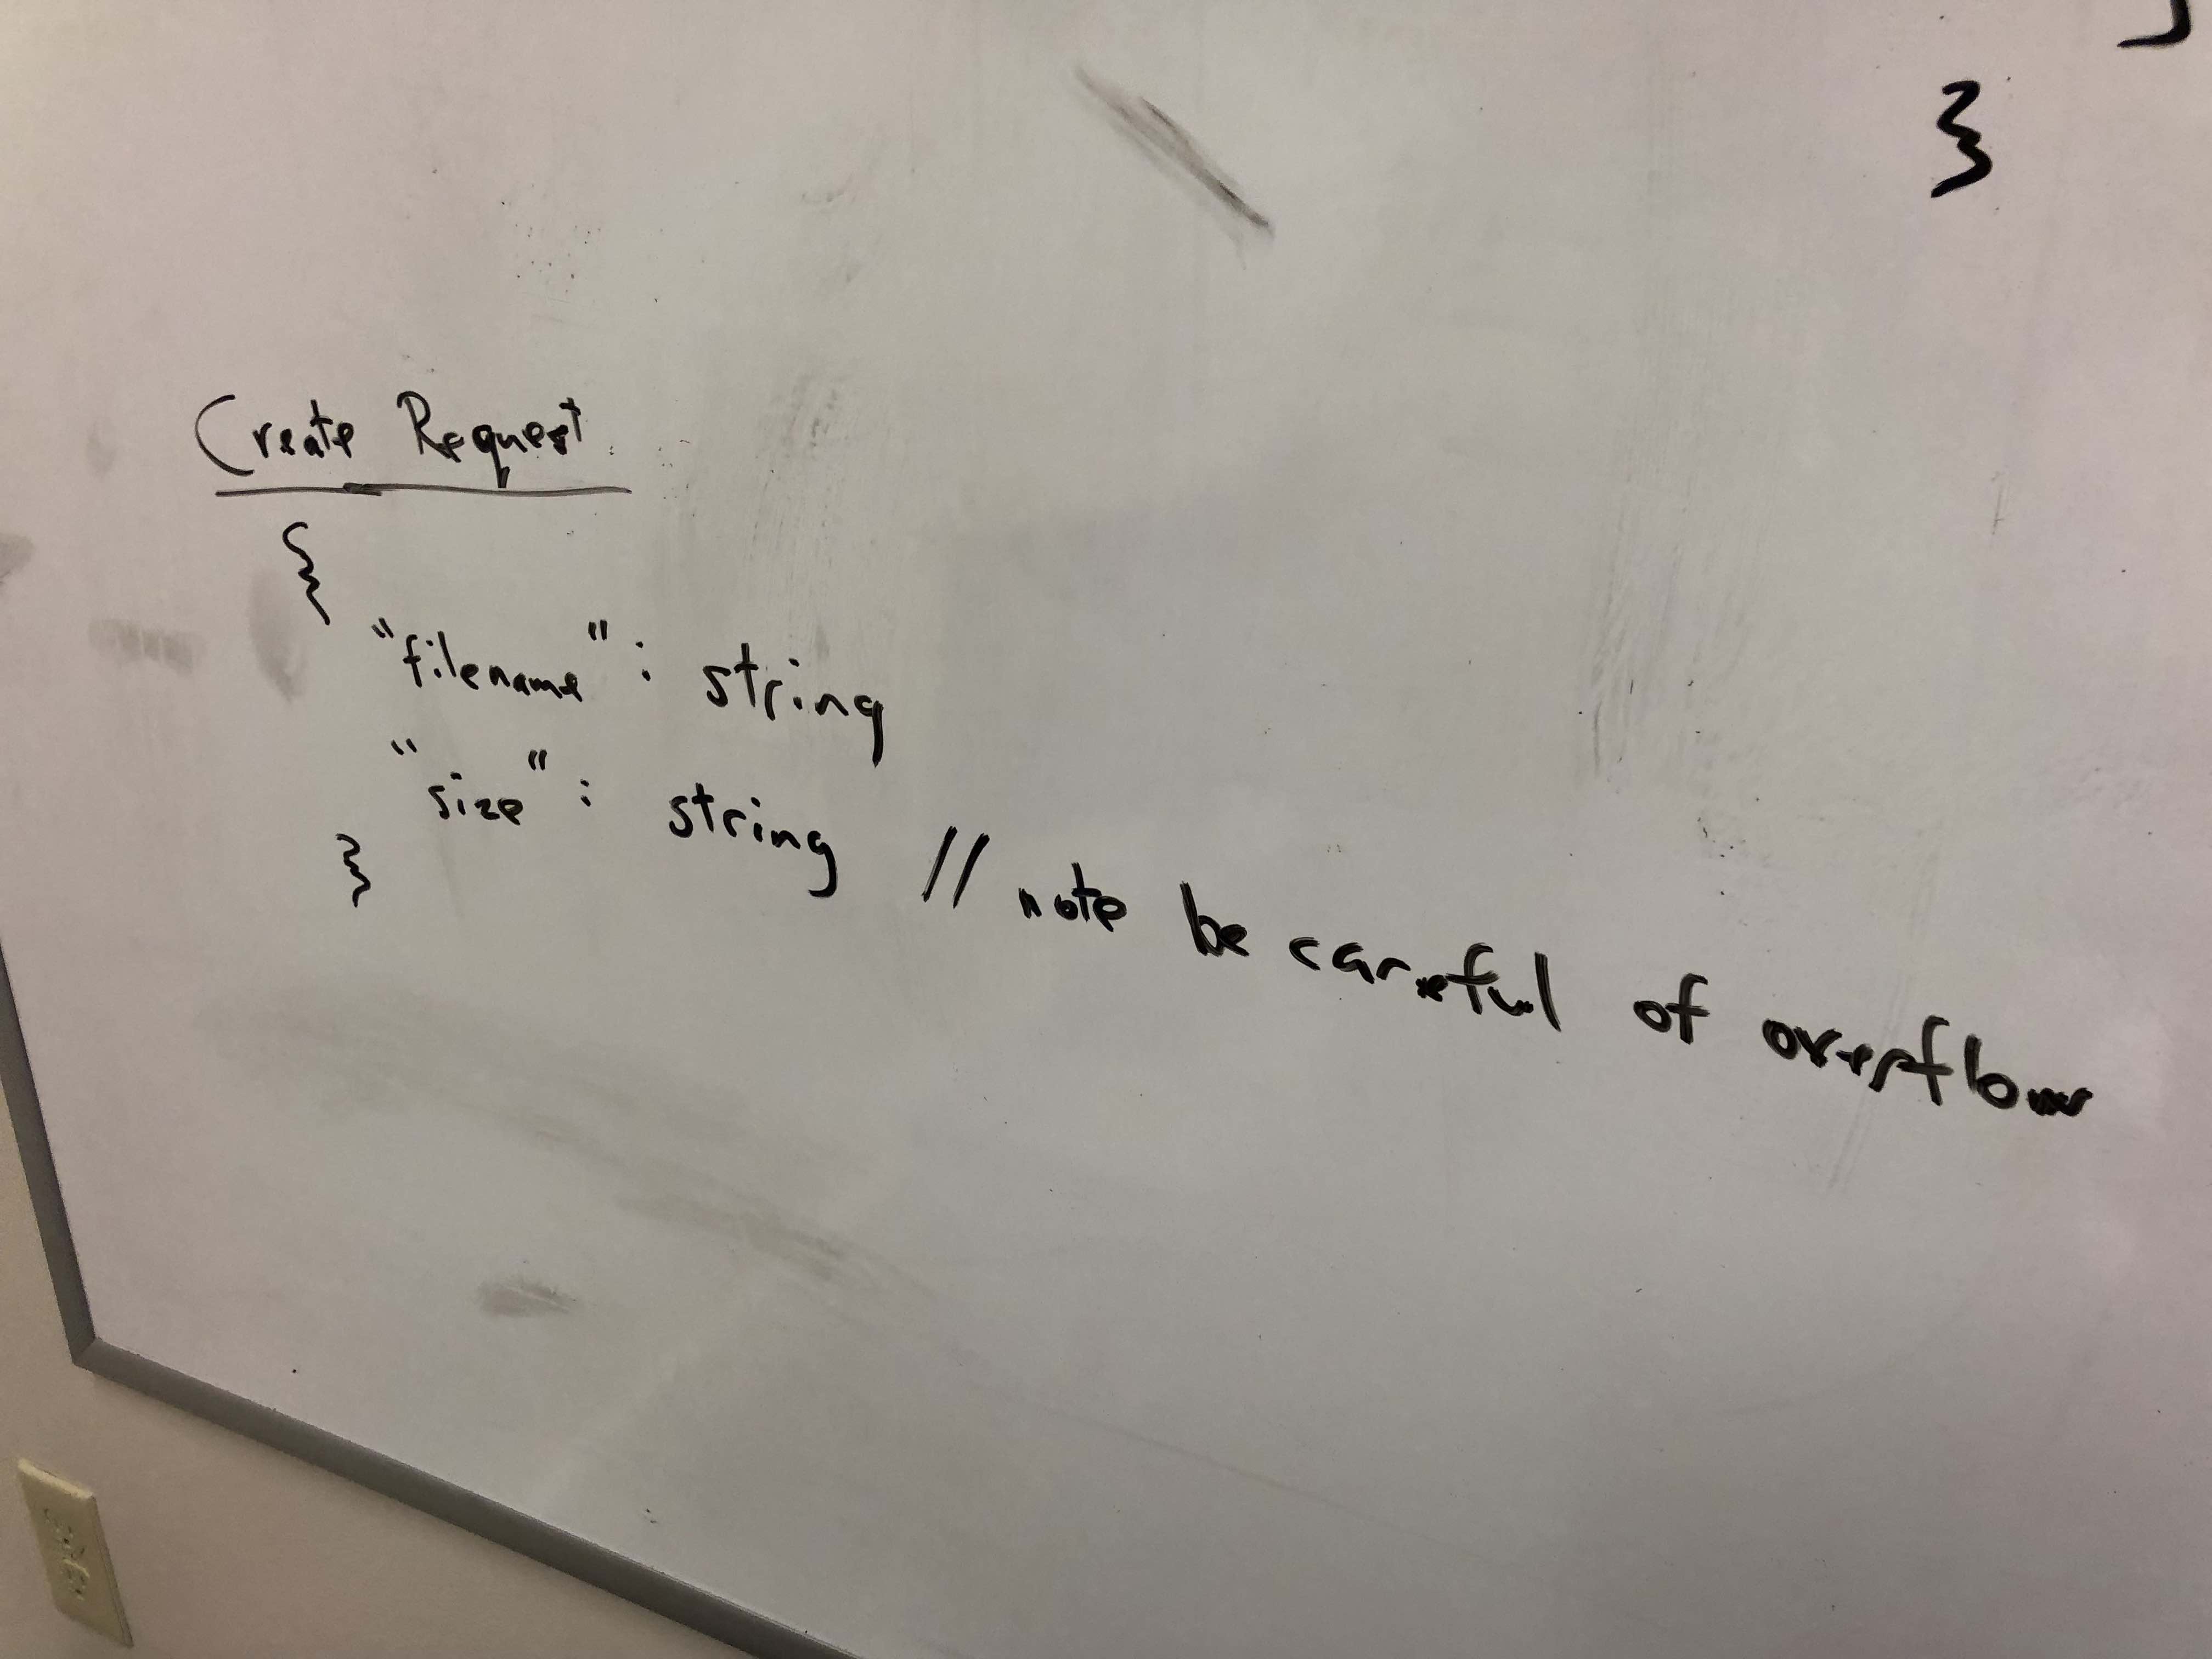 ]
}
Create Request
{
"filename" : string
"size" : string // note be careful of overflow
}